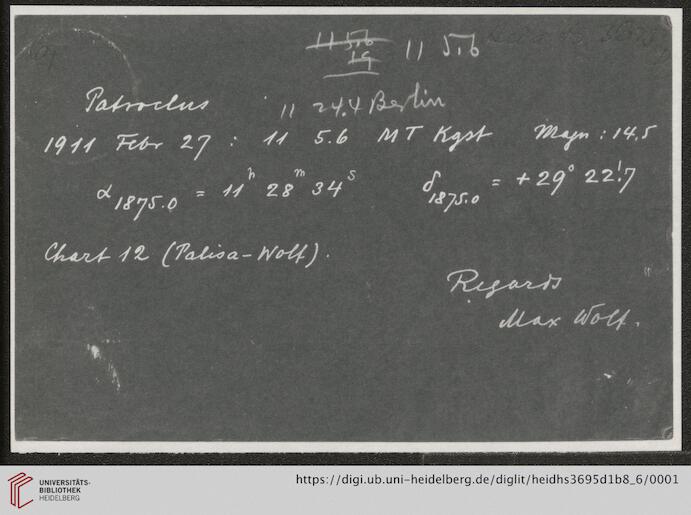 11 5.6 11 5.6
19
Patroclus 11 24.4 Berlin
1911 Febr 27 : 11 5.6 MT Kgst Magn : 14,5
α 1875.0 = 11h 28m 34s δ 1875.0 = +29° 22!7
Chart 12 (Palisa-Wolf).
Regards
Max Wolf.
UNIVERSITÄTS-
BIBLIOTHEK
HEIDELBERG
https://digi.ub.uni-heidelberg.de/diglit/heidhs3695d1b8_6/0001